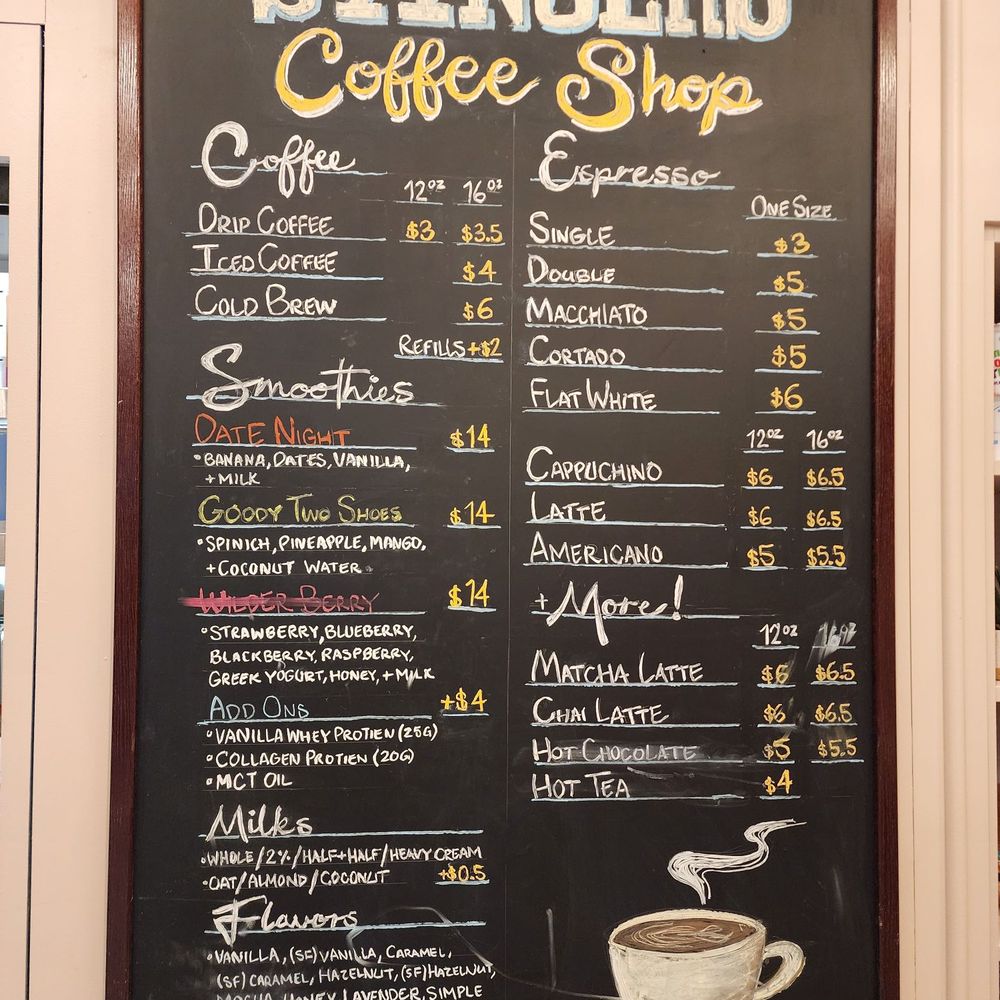 Coffee Shop
Coffee
12oz 16oz
DRIP COFFEE $3 $3.5
ICED COFFEE $4
COLD BREW $6
REFILLS +$2
Smoothies
DATE NIGHT $14
•BANANA, DATES, VANILLA,
+ MILK
GOODY TWO SHOES $14
•SPINICH, PINEAPPLE, MANGO,
+ COCONUT WATER
WILDER BERRY $14
•STRAWBERRY, BLUEBERRY,
BLACKBERRY, RASPBERRY,
GREEK YOGURT, HONEY, + MILK
ADD ONS +$4
•VANILLA WHEY PROTIEN (25G)
•COLLAGEN PROTIEN (20G)
•MCT OIL
Milks
•WHOLE/2%/HALF+HALF/HEAVY CREAM
•OAT/ALMOND/COCONUT +$0.5
Flavors
•VANILLA, (SF) VANILLA, CARAMEL,
(SF) CARAMEL, HAZELNUT, (SF) HAZELNUT,
MOCHA, HONEY, LAVENDER, SIMPLE
Espresso
ONE SIZE
SINGLE $3
DOUBLE $5
MACCHIATO $5
CORTADO $5
FLAT WHITE $6
12oz 16oz
CAPPUCHINO $6 $6.5
LATTE $6 $6.5
AMERICANO $5 $5.5
+ More!
12oz 16oz
MATCHA LATTE $6 $6.5
CHAI LATTE $6 $6.5
HOT CHOCOLATE $5 $5.5
HOT TEA $4